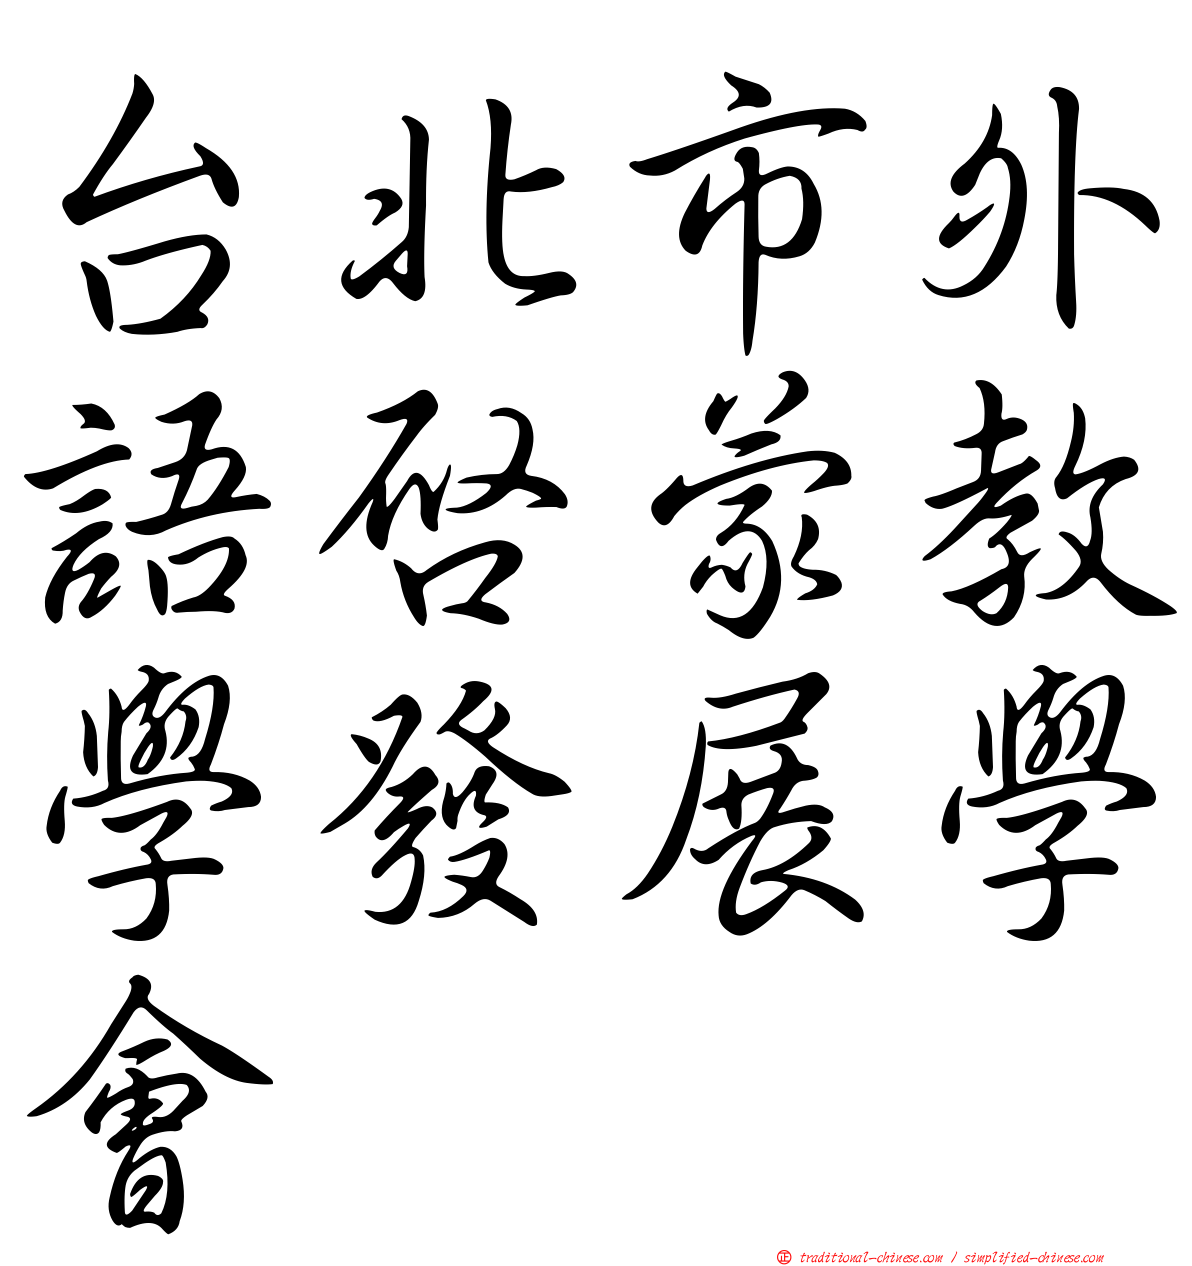 台北市外
語啓蒙教
學發展學
會
㊣ traditional-chinese.com / simplified-chinese.com